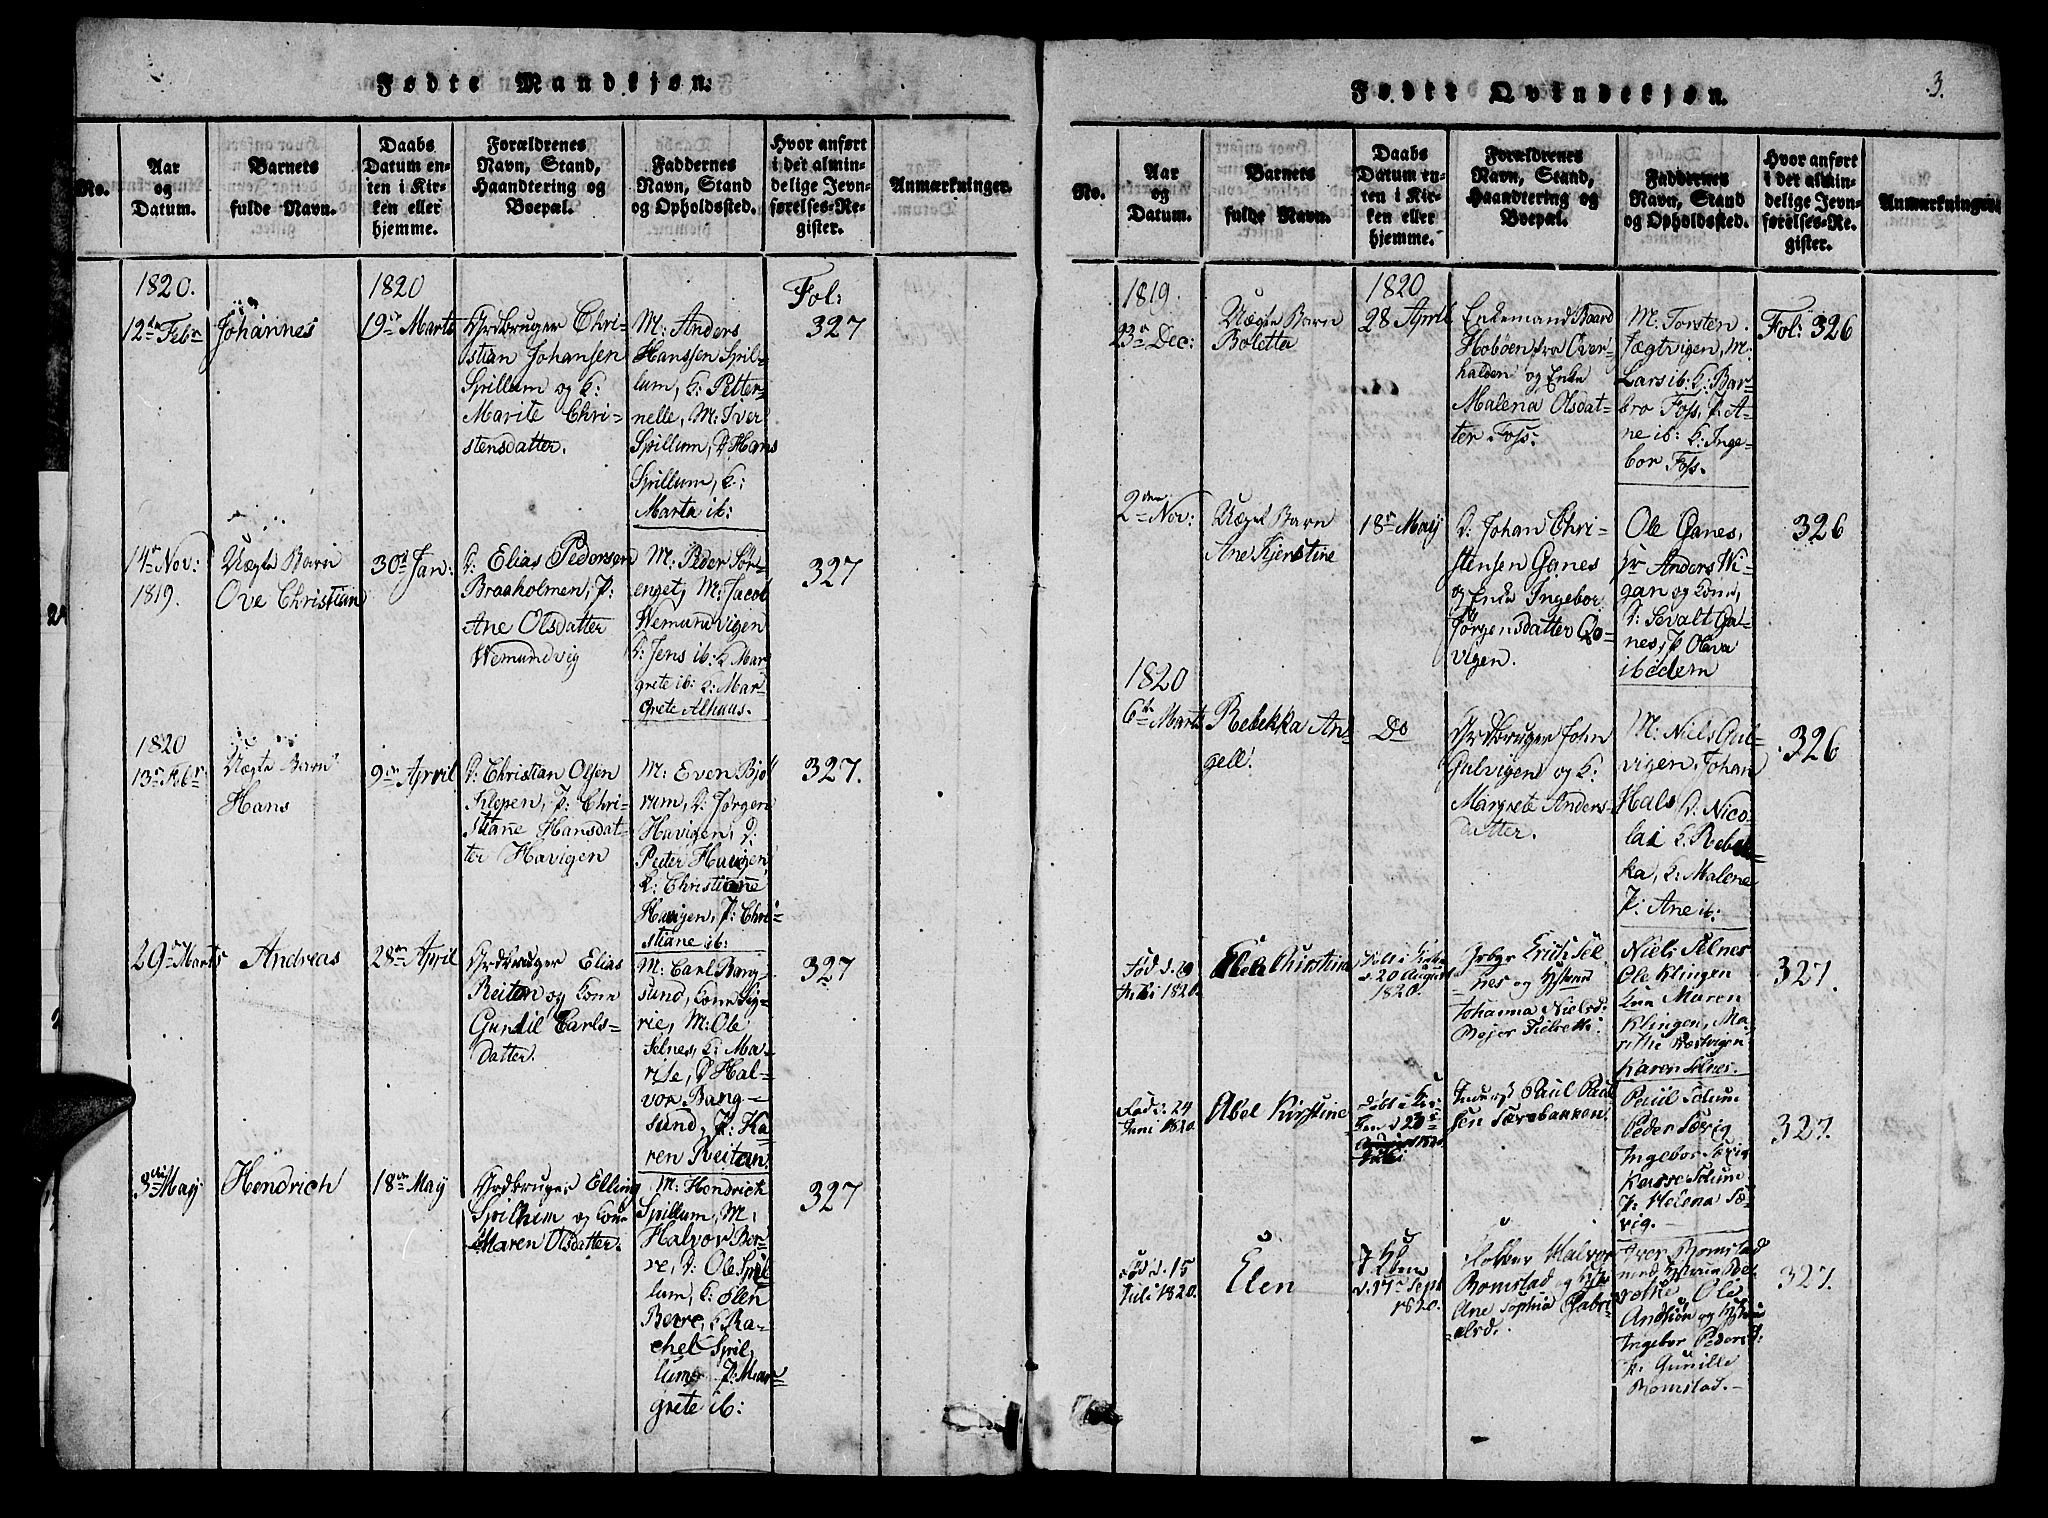 Fødte Mandkjøn.
No.
Aar
og
Datum.
Barnets
fulde Navn.
Daabs
Datum en-
ten i Kir-
ken eller
hjemme.
Forældrenes
Navn, Stand,
Haandtering og
Boepal.
Faddernes
Navn, Stand
og Opholdssted.
Hvor anført
i det almin-
delige Jevn-
førelses-Re-
gister.
Anmærkninger.
1820.
12te Febr
Johannes
1820
19de Marts
Grdbruger Chri-
stian Johansen
Spillum og K:
Marite Chri-
stensdatter.
M: Anders
Hanssen Spil-
lum, K: Petter-
nelle, M: Iver
Spillum, D: Hans
Spillum, K:
Marta ib:
Fol:
327
14de Nov:
1819.
Uægte Barn
Ove Christian
30d Jan:
D: Elias Pedersen
Braaholmen, P:
Ane Olsdatter
Wemundvig
M: Peder Sør-
enget, M: Jacob
Wemundvigen
D: Jens ib: K: Mar-
grete ib: K: Mar-
grete Alhuus.
327
1820
13de Febr
Uægte Barn
Hans
9de April
D: Christian Olsen
Klepen, P: Chri-
stiane Hansdat-
ter Havigen
M: Even Bjø-
rum, D: Jørgen
Havigen, D:
Peter Havigen,
K: Christiane
Havigen, P: Chri-
stiane ib:
327.
29de Marts
Andreas
28de April
Grdbruger Elias
Reitan og Kone
Gunild Carls-
datter.
M: Carl Bang-
sund, Kone Sig-
rie, M: Ole
Selnes, K: Ma-
rise, D: Hal-
vor Bang-
sund, P: Ka-
ren Reitan
327
3die May
Hendrich
18de May
Grdbruger Elling
Spillum og Kone
Maren Olsdatter.
M: Hendrich
Spillum, M:
Halvor Ber-
re, D: Ole Spil-
lum, K: Elen
Berre, K: Ra-
chel Spil-
lum, P: Mar-
grete ib:
327
Fødte Qvindekjøn.
3.
No.
Aar
og
Datum.
Barnets
fulde Navn.
Daabs
Datum en-
ten i Kir-
ken eller
hjemme.
Forældrenes
Navn, Stand,
Haandtering og
Boepal.
Faddernes
Navn, Stand
og Opholdssted.
Hvor anført
i det almin-
delige Jevn-
førelses-Re-
gister.
Anmærkninger.
1819.
23de Dec:
Uægte Barn
Boletta
1820
28 April
Enkemand Baard
Hobøen fra Over-
halden og Enke
Malena Olsdat-
ter Foss.
M: Torsten
Jægtvigen, M:
Lars ib: K: Bar-
bro Foss, P: A-
ne ib: K: Inge-
bor Foss.
Fol: 326
2den Nov:
Uægte Barn
Ane Kjerstine
18de May
D: Johan Chri-
stensen Ganes
og Enke Ingebor
Jørgensdatter Qo-
vigen.
Ole Ganes,
Anders Wi-
gan og Kone,
D: Sevalt Ga-
nes, P: Olava
ibidem
326
1820
6te Marts
Rebekka An-
gell.
Do
Grdbruger John
Gulvigen og K:
Margrete Anders-
datter.
M: Niels Gul-
vigen, Johan
Hals, D: Nico-
lai K: Rebek-
ka, K: Malene
P: Ane ib:
326
Fød d. 19
Juli 1820.
Elen Chirstina
Døbt i Kirken
d. 20 August
1820.
Erich Sel-
nes og Hstrue
Johanna Nielsd.
Niels Selnes
Ole Klingen
Maren
Klingen, Ma-
rithe Kastvigen
Karen Selnes.
327.
Fød d. 24
Juni 1820.
Abel Kirstine
Døbt i Kir-
ken d 23de
Juli
Inderst Paul Paul-
sen Særsbakken.
Paul Solum
Peder Særig
Ingebor Særig
Solum
P: Helena Sæ-
rig.
327.
Fød d. 15
Juli 1820.
Elen
d. 17de Sept
1820.
Halvor
Romstad og Hstr
Ane Sophia Gabri-
elsd.
Iver Romstad
med Hstrue
Ole
Andsjøn og Hstrue
Ingebor Pedersd:
P: Gunille
Romstad.
327.